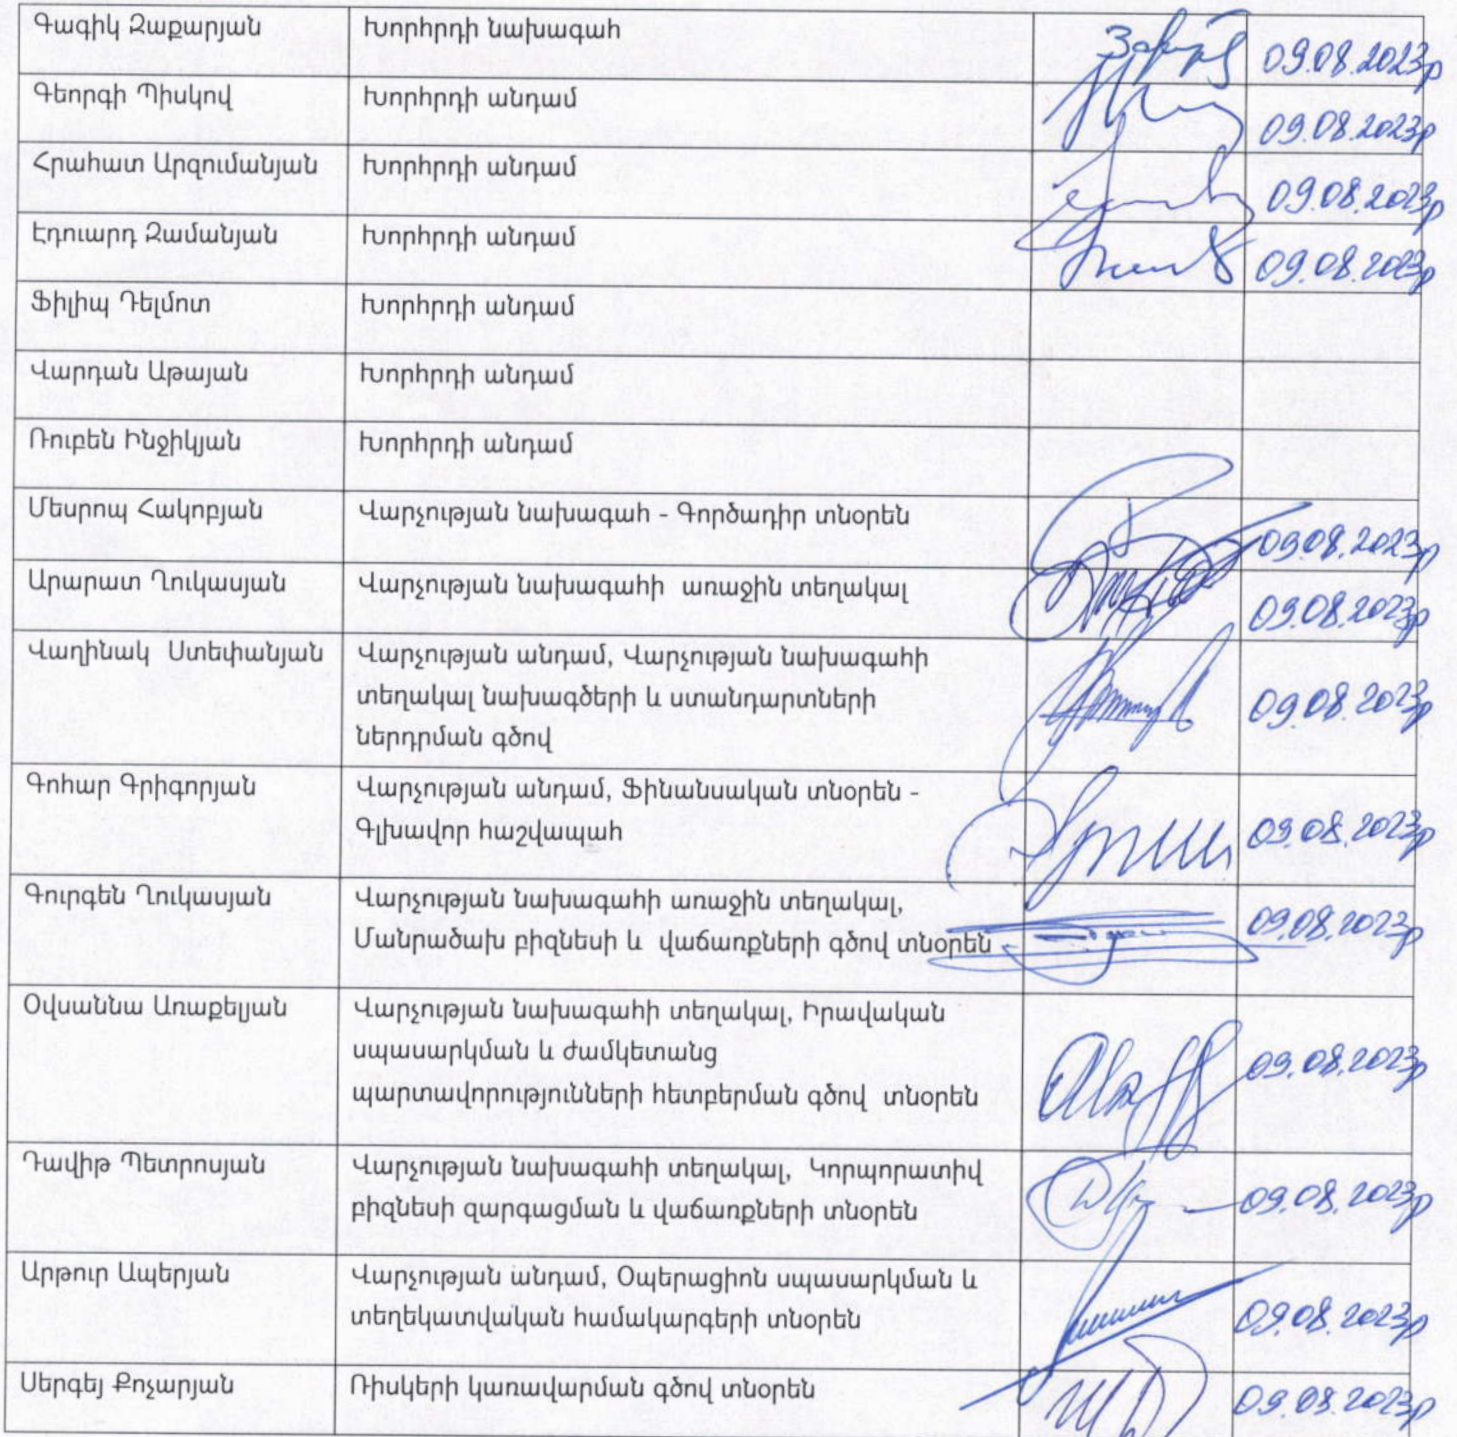 Գագիկ Զաքարյան Խորհրդի նախագահ 09.08.2023թ
Գեորգի Պիսկով Խորհրդի անդամ 09.08.2023թ
Հրահատ Արզումանյան Խորհրդի անդամ 09.08.2023թ
Էդուարդ Զամանյան Խորհրդի անդամ 09.08.2023թ
Ֆիլիպ Դելմոտ Խորհրդի անդամ
Վարդան Աթայան Խորհրդի անդամ
Ռուբեն Ինջիկյան Խորհրդի անդամ
Մեսրոպ Հակոբյան Վարչության նախագահ - Գործադիր տնօրեն 09.08.2023թ
Արարատ Ղուկասյան Վարչության նախագահի առաջին տեղակալ 09.08.2023թ
Վաղինակ Ստեփանյան Վարչության անդամ, Վարչության նախագահի
տեղակալ նախագծերի և ստանդարտների 09.08.2023թ
ներդրման գծով
Գոհար Գրիգորյան Վարչության անդամ, Ֆինանսական տնօրեն -
Գլխավոր հաշվապահ 09.08.2023թ
Գուրգեն Ղուկասյան Վարչության նախագահի առաջին տեղակալ, 09.08.2023թ
Մանրածախ բիզնեսի և վաճառքների գծով տնօրեն
Օվսաննա Առաքելյան Վարչության նախագահի տեղակալ, Իրավական
սպասարկման և ժամկետանց 09.08.2023թ
պարտավորությունների հետբերման գծով տնօրեն
Դավիթ Պետրոսյան Վարչության նախագահի տեղակալ, Կորպորատիվ
բիզնեսի զարգացման և վաճառքների տնօրեն 09.08.2023թ
Արթուր Ապերյան Վարչության անդամ, Օպերացիոն սպասարկման և
տեղեկատվական համակարգերի տնօրեն 09.08.2023թ
Սերգեյ Քոչարյան Ռիսկերի կառավարման գծով տնօրեն 09.08.2023թ